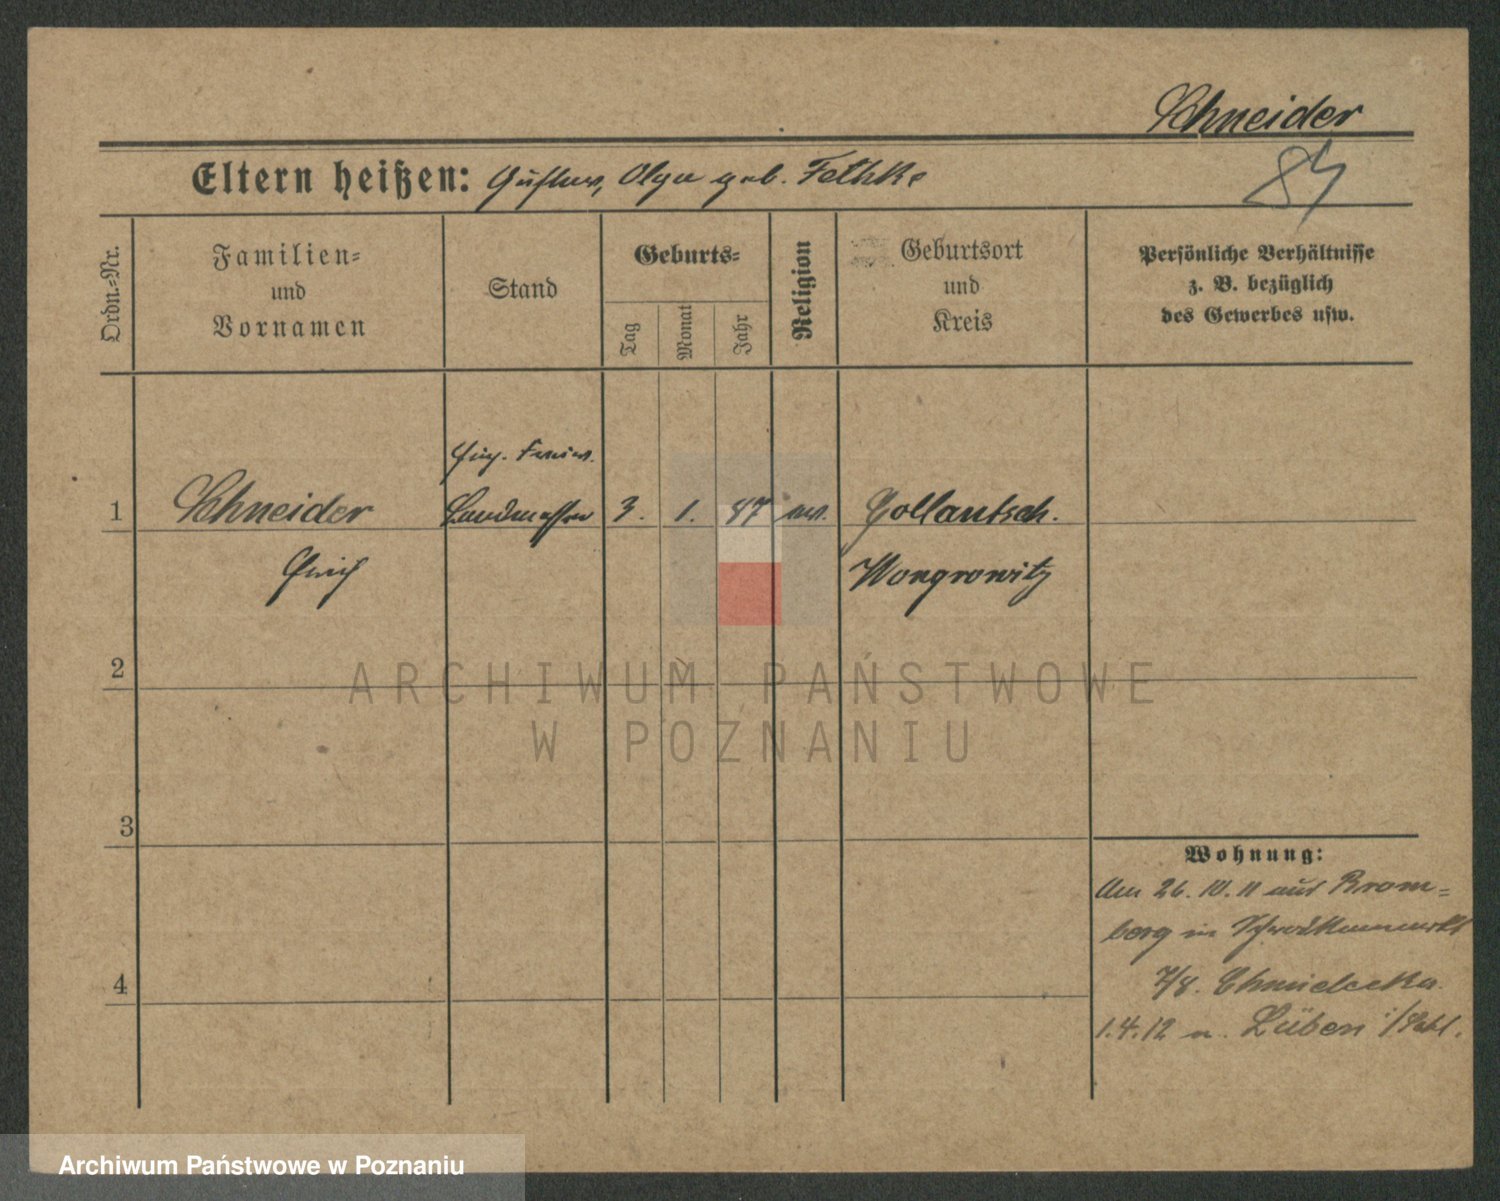 Schneider
84
Eltern heißen: Gustav, Olga geb. Fethke
Ordn.-Nr.
Familien-
und
Vornamen
Stand
Geburts-
Tag
Monat
Jahr
Religion
Geburtsort
und
Kreis
Persönliche Verhältnisse
z. B. bezüglich
des Gewerbes usw.
Einj. Freiw.
1 Schneider Landmesser 3. 1. 87 ev. Gollantsch.
Erich Wongrowitz
2
ARCHIWUM PAŃSTWOWE
W POZNANIU
3
Wohnung:
Am 26.10.11 aus Brom-
berg in
7/8. Chmielecka.
4
1.4.12 n. Lüben i/Schl.
Archiwum Państwowe w Poznaniu